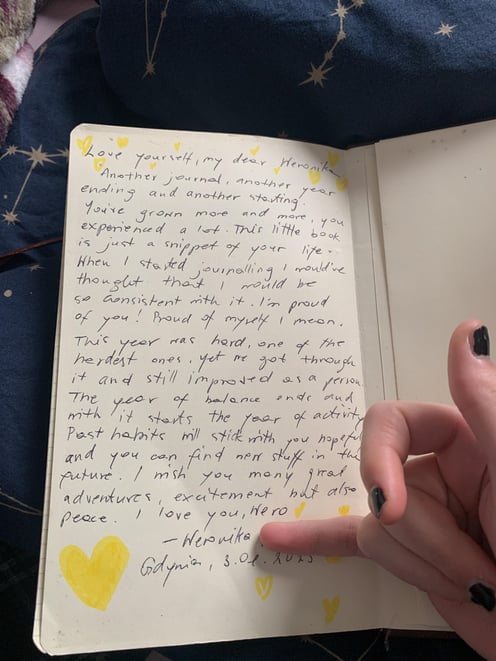 Love yourself, my dear Weronika
Another journal, another year
ending and another starting.
You've grown more and more, you
experienced a lot. This little book
is just a snippet of your life..
When I started journalling I would've
thought that I would be
so consistent with it. I'm proud
of you! Proud of myself I mean.
This year was hard, one of the
hardest ones. Yet we got through
it and still improved as a person
The year of balance ends and
with it starts the year of activity
Past habits will stick with you hopeful
and you can find new stuff in the
future. I wish you many great
adventures, excitement but also
peace. I love you, Wero
- Weronika
Gdynia, 3.01.2025